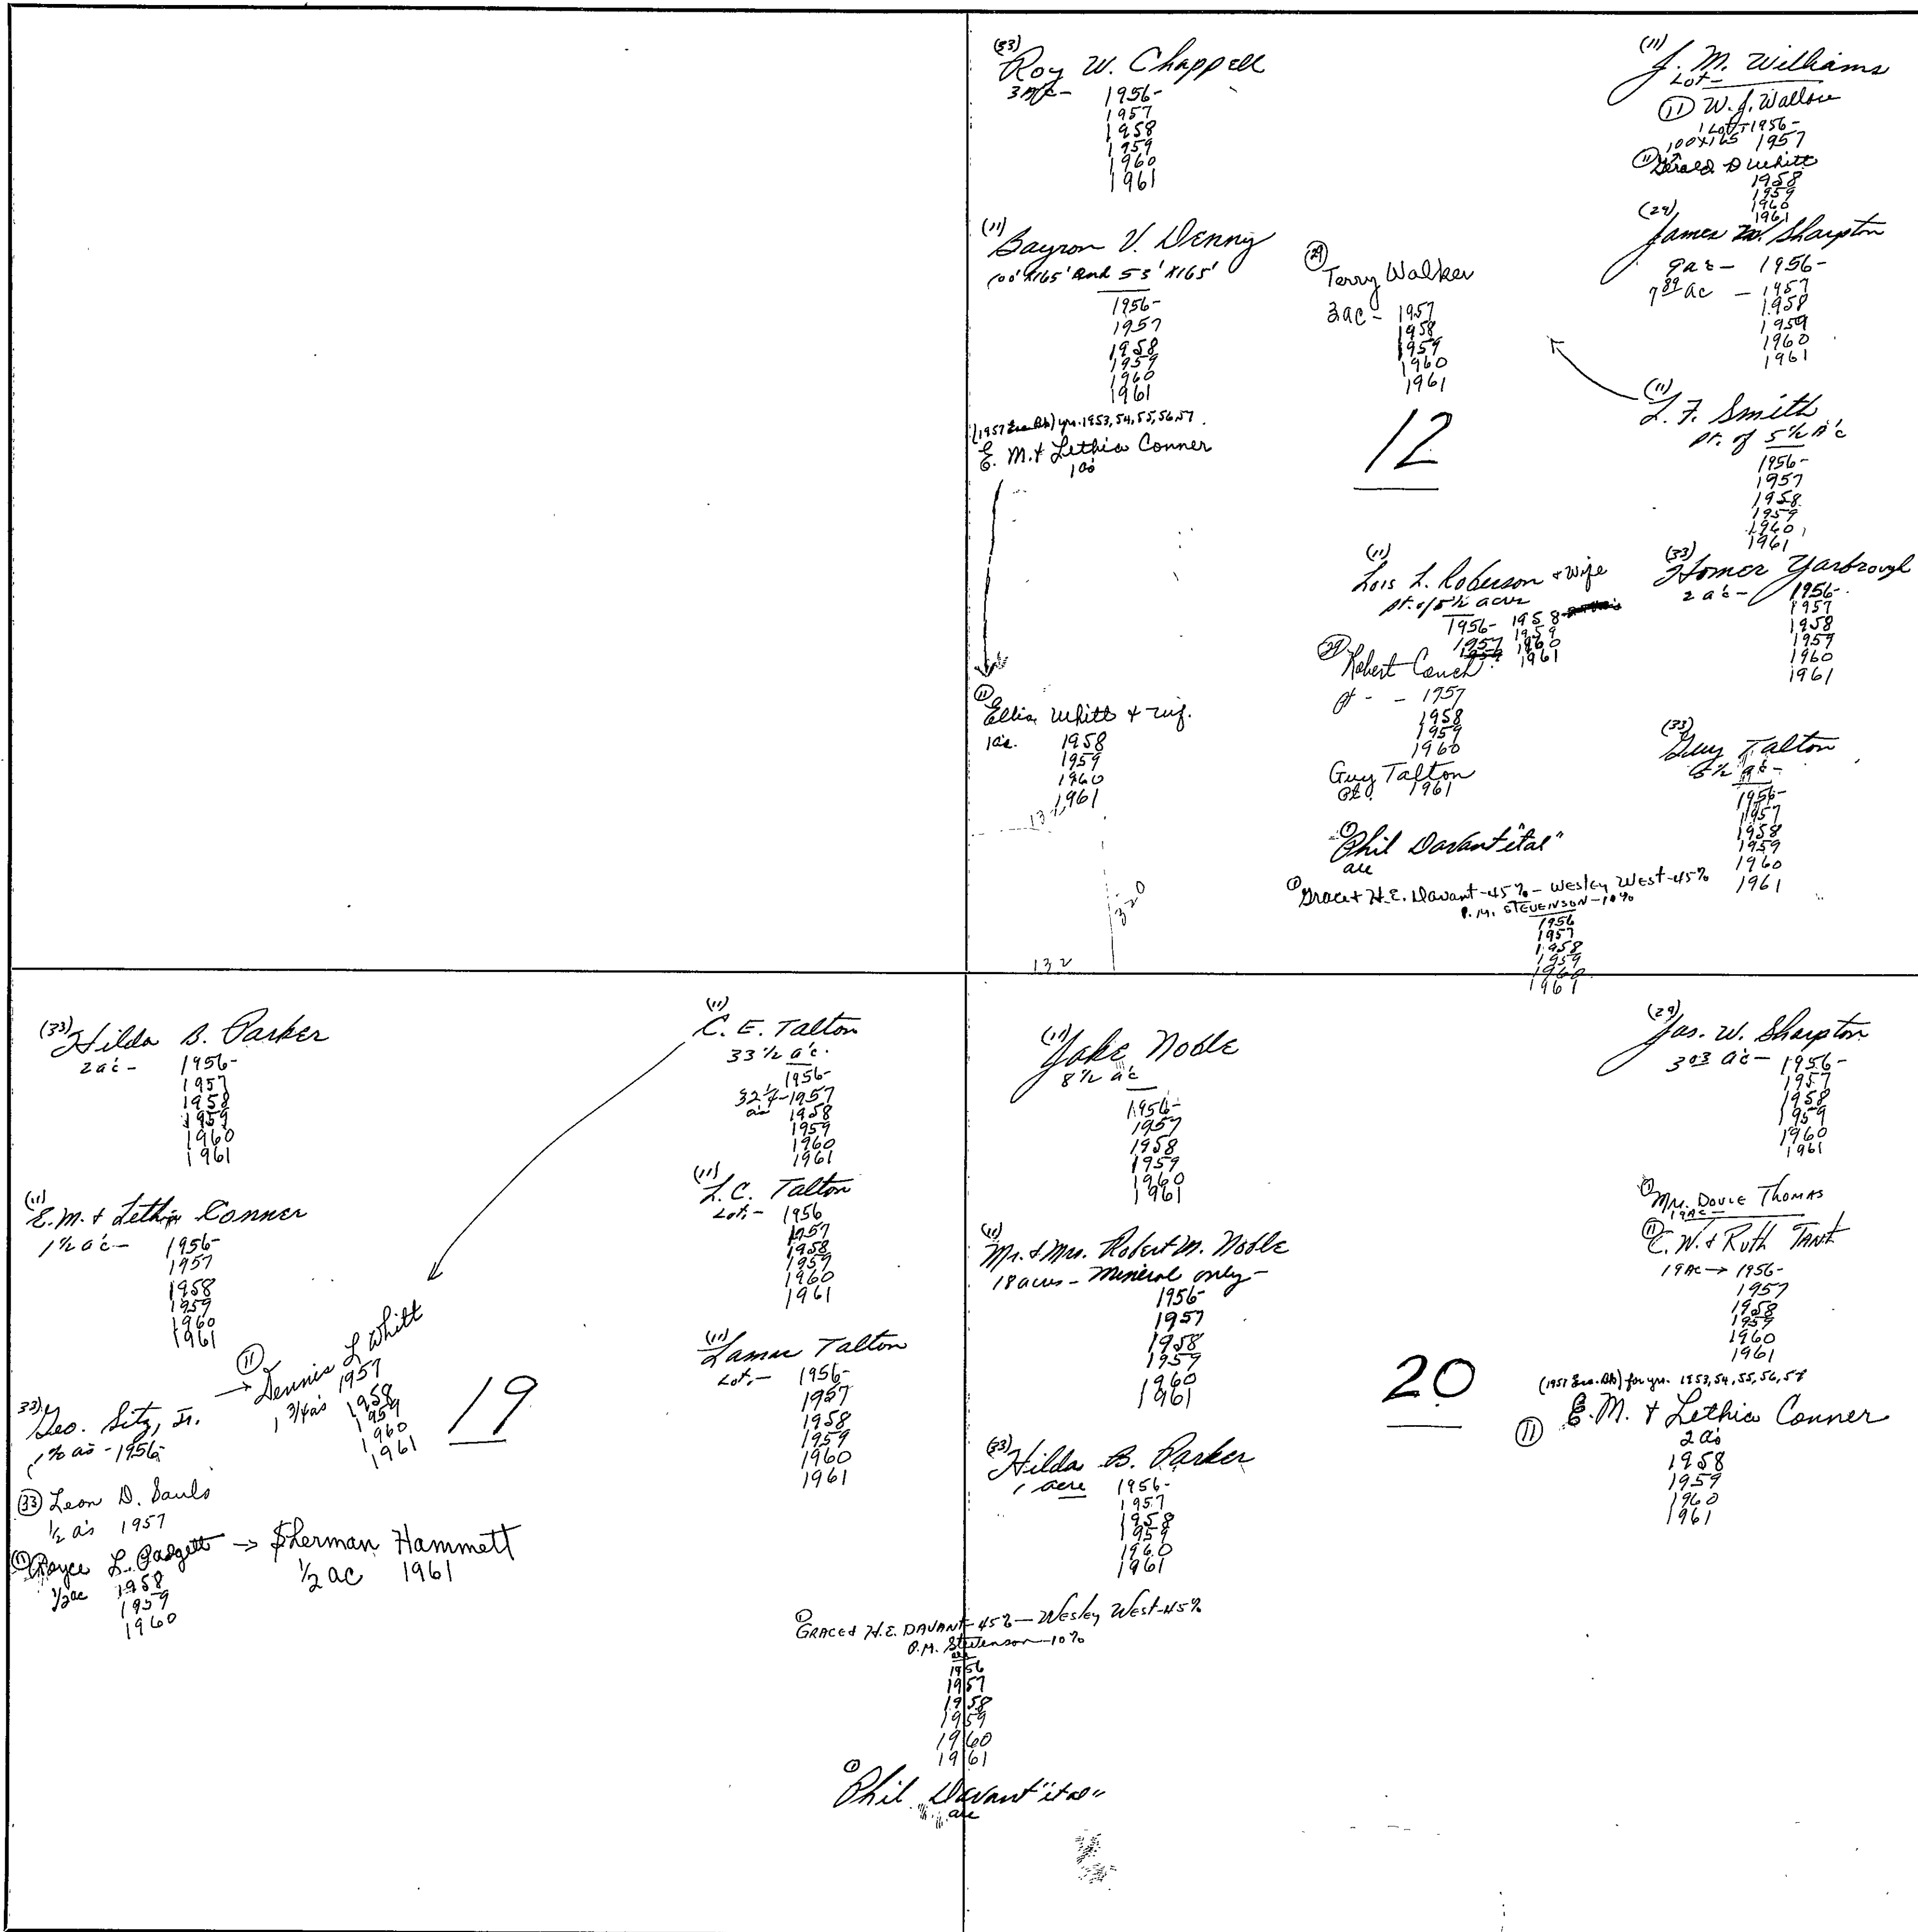 (33)
Roy W. Chappell
3 A/c - 1956-
1957
1958
1959
1960
1961
(11)
Bayron V. Denny
100' X165' And 53' X165'
1956-
1957
1958
1959
1960
1961
yrs. 1953, 54, 55, 56, 57.
E. M. & Lethia Conner
1 ac
(11)
Ellis Whitt & wif.
1 ac. 1958
1959
1960
1961
132
320
132
(29)
Terry Walker
3 ac - 1957
1958
1959
1960
1961
12
(11)
Lois L. Roberson & Wife
pt. of 5 1/2 acres
1956- 1958
1957 1959
1959 1960
1961
(29)
Robert Couch
pt - - 1957
1958
1959
1960
Guy Talton
pt. 1961
(1)
"Phil Davant "etal"
all
(1) Grace & H.E. Davant-45% - Wesley West-45%
P.M. STEVENSON-10%
1956
1957
1958
1959
1960
1961
(11)
J. M. Williams
Lot-
(11) W. J. Wallace
1 Lot - 1956-
100X165 1957
(11) Gerald D Whitt
1958
1959
1960
1961
(29)
James W. Sharpton
9 ac - 1956-
7 89 ac - 1957
1958
1959
1960
1961
(11)
L. F. Smith
pt. of 5 1/2 A'c
1956-
1957
1958
1959
1960
1961
(33)
Homer Yarbrough
2 a'c - 1956-
1957
1958
1959
1960
1961
(33)
Guy Talton
5 1/2 ac -
1956-
1957
1958
1959
1960
1961
(33) Hilda B. Parker
2 a'c - 1956-
1957
1958
1959
1960
1961
(11)
E.M. & Lethia Conner
1 1/2 a'c - 1956-
1957
1958
1959
1960
1961
(33)
Geo. Sitz, Jr.
1956-
(11)
→ Dennis L Whitt
1 3/4 ac 1957
1958
1959
1960
1961
(33) Leon D. Sauls
1/2 ac 1957
(11) Royce L. Padgett → Sherman Hammett
1/2 ac 1961
1/2 ac 1958
1959
1960
19
(11)
C. E. Talton
33 1/2 a'c.
1956-
32 1/4 - 1957
ac 1958
1959
1960
1961
(11)
L. C. Talton
Lot, - 1956
1957
1958
1959
1960
1961
(11)
Lamar Talton
Lot, - 1956-
1957
1958
1959
1960
1961
(1)
GRACE & H.E. DAVANT-45% — Wesley West-45%
P.M. Stevenson-10%
all
1956
1957
1958
1959
1960
1961
(1)
Phil Davant "etal"
all
(11)
Jake Noble
8 1/2 a'c
1956-
1957
1958
1959
1960
1961
(11)
Mr. & Mrs. Robert M. Noble
18 acres - Mineral only -
1956-
1957
1958
1959
1960
1961
(33)
Hilda B. Parker
1 acre 1956-
1957
1958
1959
1960
1961
20
(29)
Jas. W. Sharpton
3 03 a'c - 1956-
1957
1958
1959
1960
1961
(1)
Mrs. DOVIE THOMAS
19 AC -
(11)
C. W. & Ruth TANT
19 AC → 1956-
1957
1958
1959
1960
1961
for yrs. 1953, 54, 55, 56, 57
(11) E. M. & Lethia Conner
2 ac
1958
1959
1960
1961